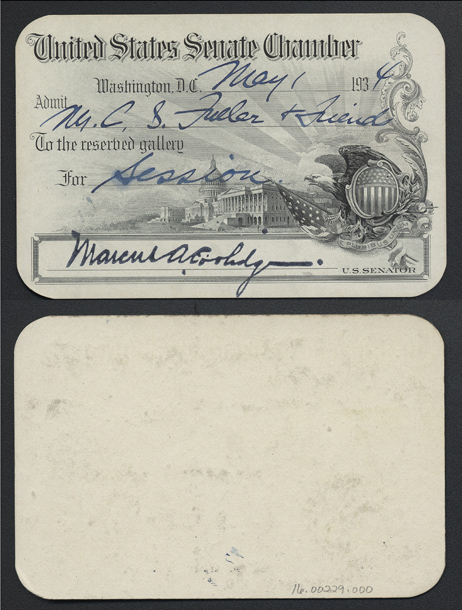 United States Senate Chamber
Washington, D.C. May 1 1934
Admit
Mr. C. S. Fuller & Friend
To the reserved gallery
For Session.
Marcus A. Coolidge.
U.S. SENATOR
16.00229.000